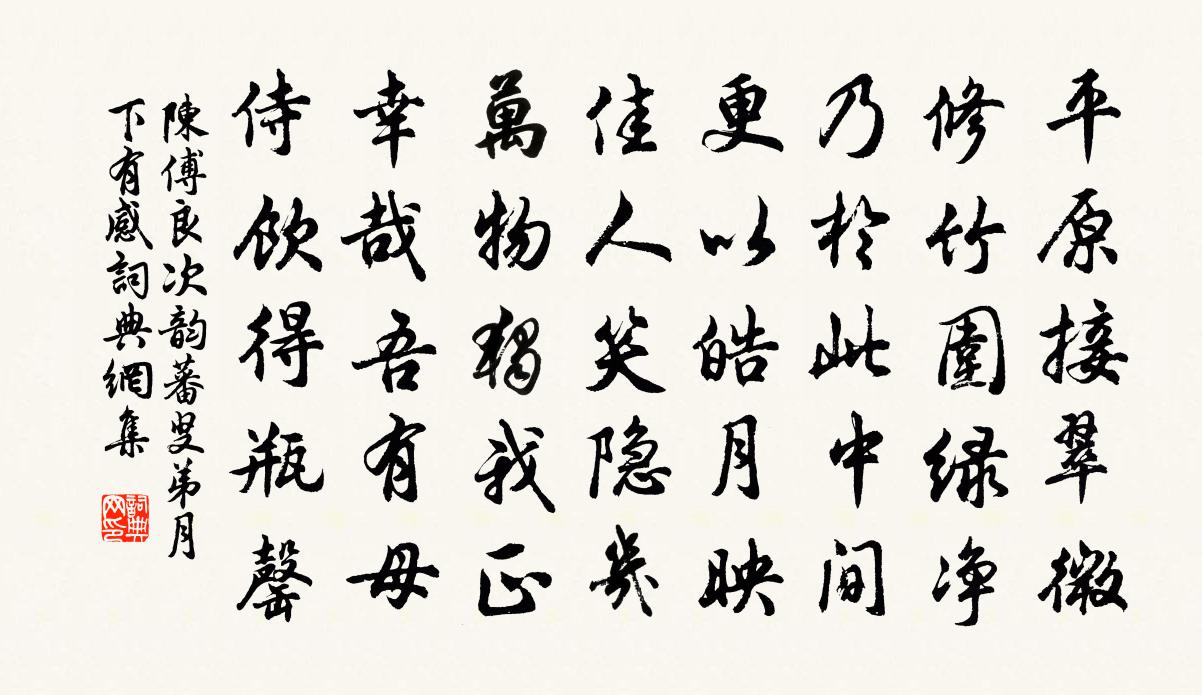 平原接翠微
修竹圍绿净
乃於此中间
更以皓月映
佳人笑隐几
萬物獨我正
幸哉吾有母
侍飲得瓶罄
陳傅良次韵蕃叟弟月
下有感詞典網集
詞典
网印